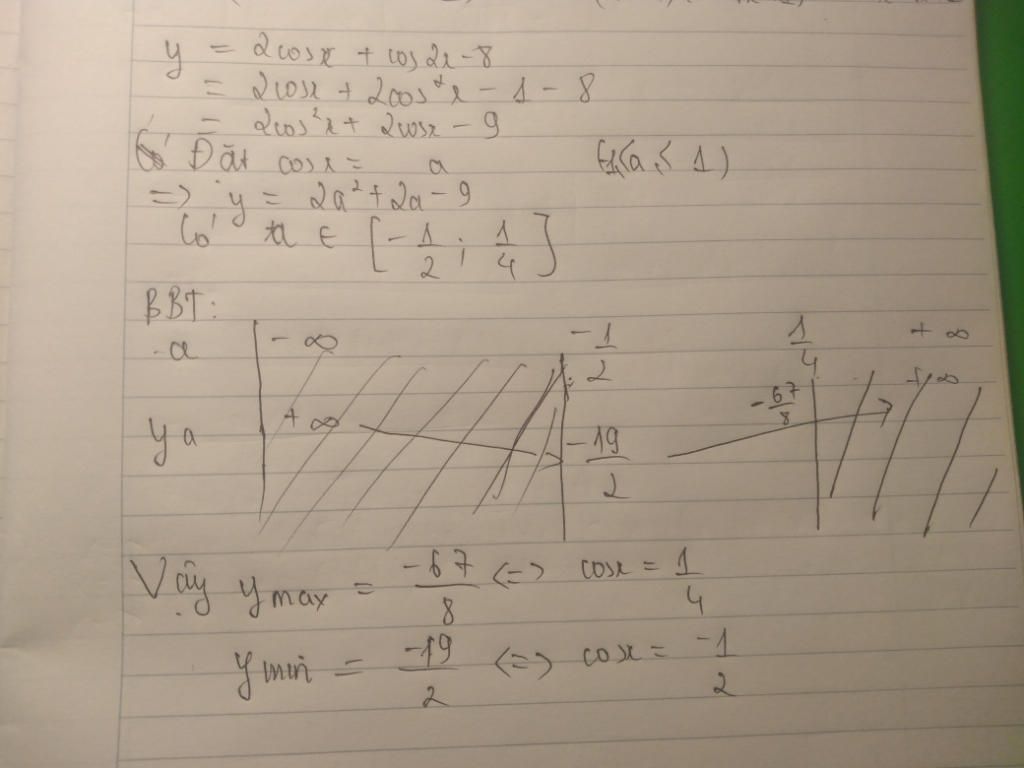 y = 2cosx + cos2x - 8
= 2cosx + 2cos²x - 1 - 8
= 2cos²x + 2cosx - 9
Đặt cosx = a (-1 ≤ a ≤ 1)
=> y = 2a² + 2a - 9
Có a ∈ [-1/2 ; 1/4]
BBT:
a -∞ -1/2 1/4 +∞
y a +∞ -19/2 -67/8 +∞
Vậy ymax = -67/8 <=> cosx = 1/4
ymin = -19/2 <=> cosx = -1/2